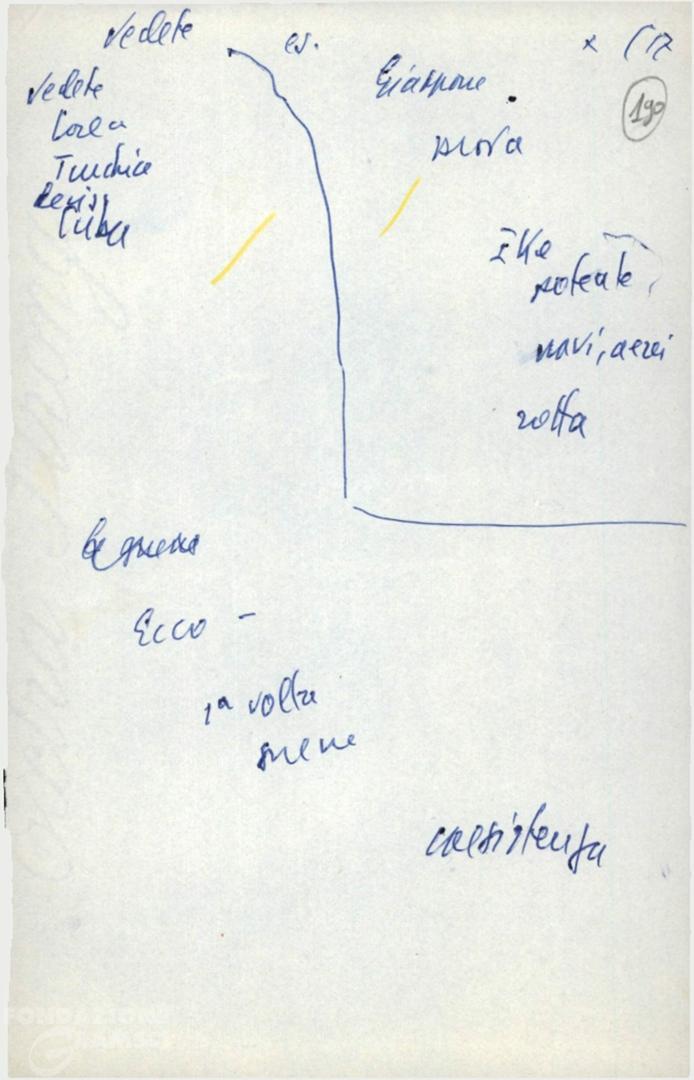 vedete
es.
x (17
190
vedete
Corea
Turchia
Cuba
Giappone.
prova
Ike
potente,
navi, aerei
rotta
la guerra
Ecco -
1ª volta
coesistenza
FONDAZIONE
GRAMSCI